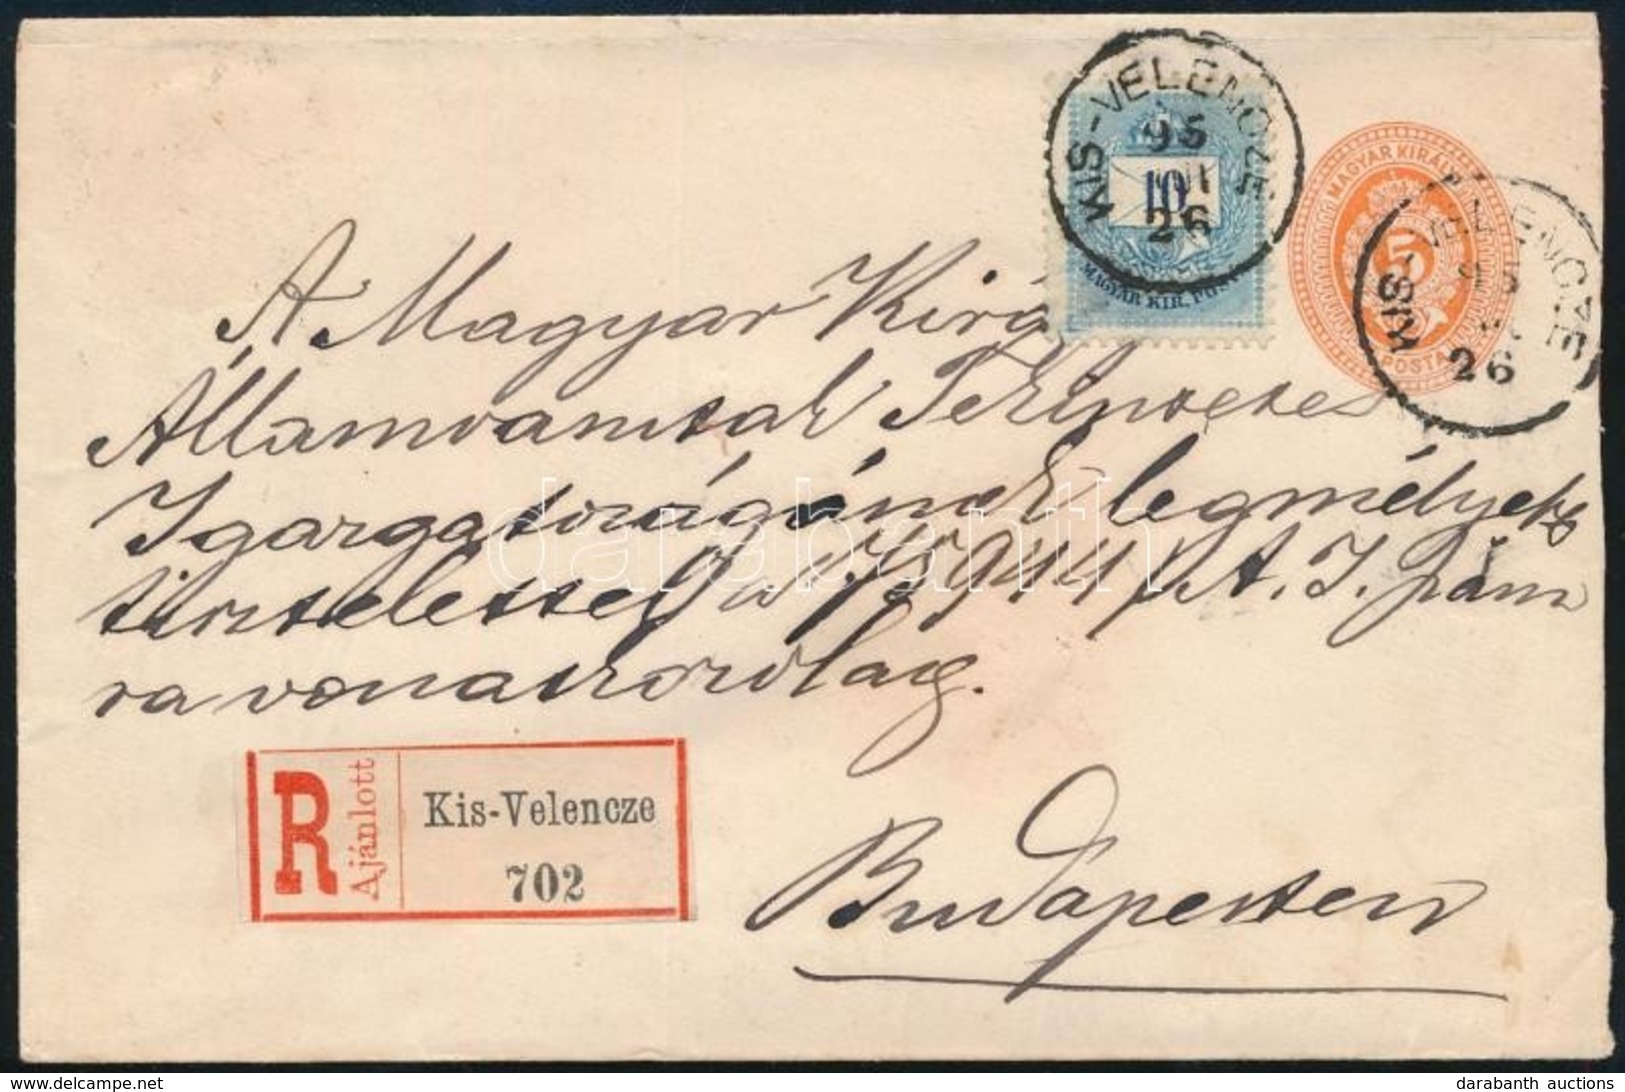 KIS-VELENCZE
95
26
10
MAGYAR KIR. POSTA
MAGYAR KIRÁLYI
5
POSTA
KIS-VELENCZE
95
26
A Magyar Kirá
Államvasutak Tekintetes
Igazgatóságának legmélyebb
tisztelettel a 75944/A. I. szám
ra vonatkozólag.
R
Ajánlott
Kis-Velencze
702
Budapesten
darabanth
darabanth auctions
www.delcampe.net